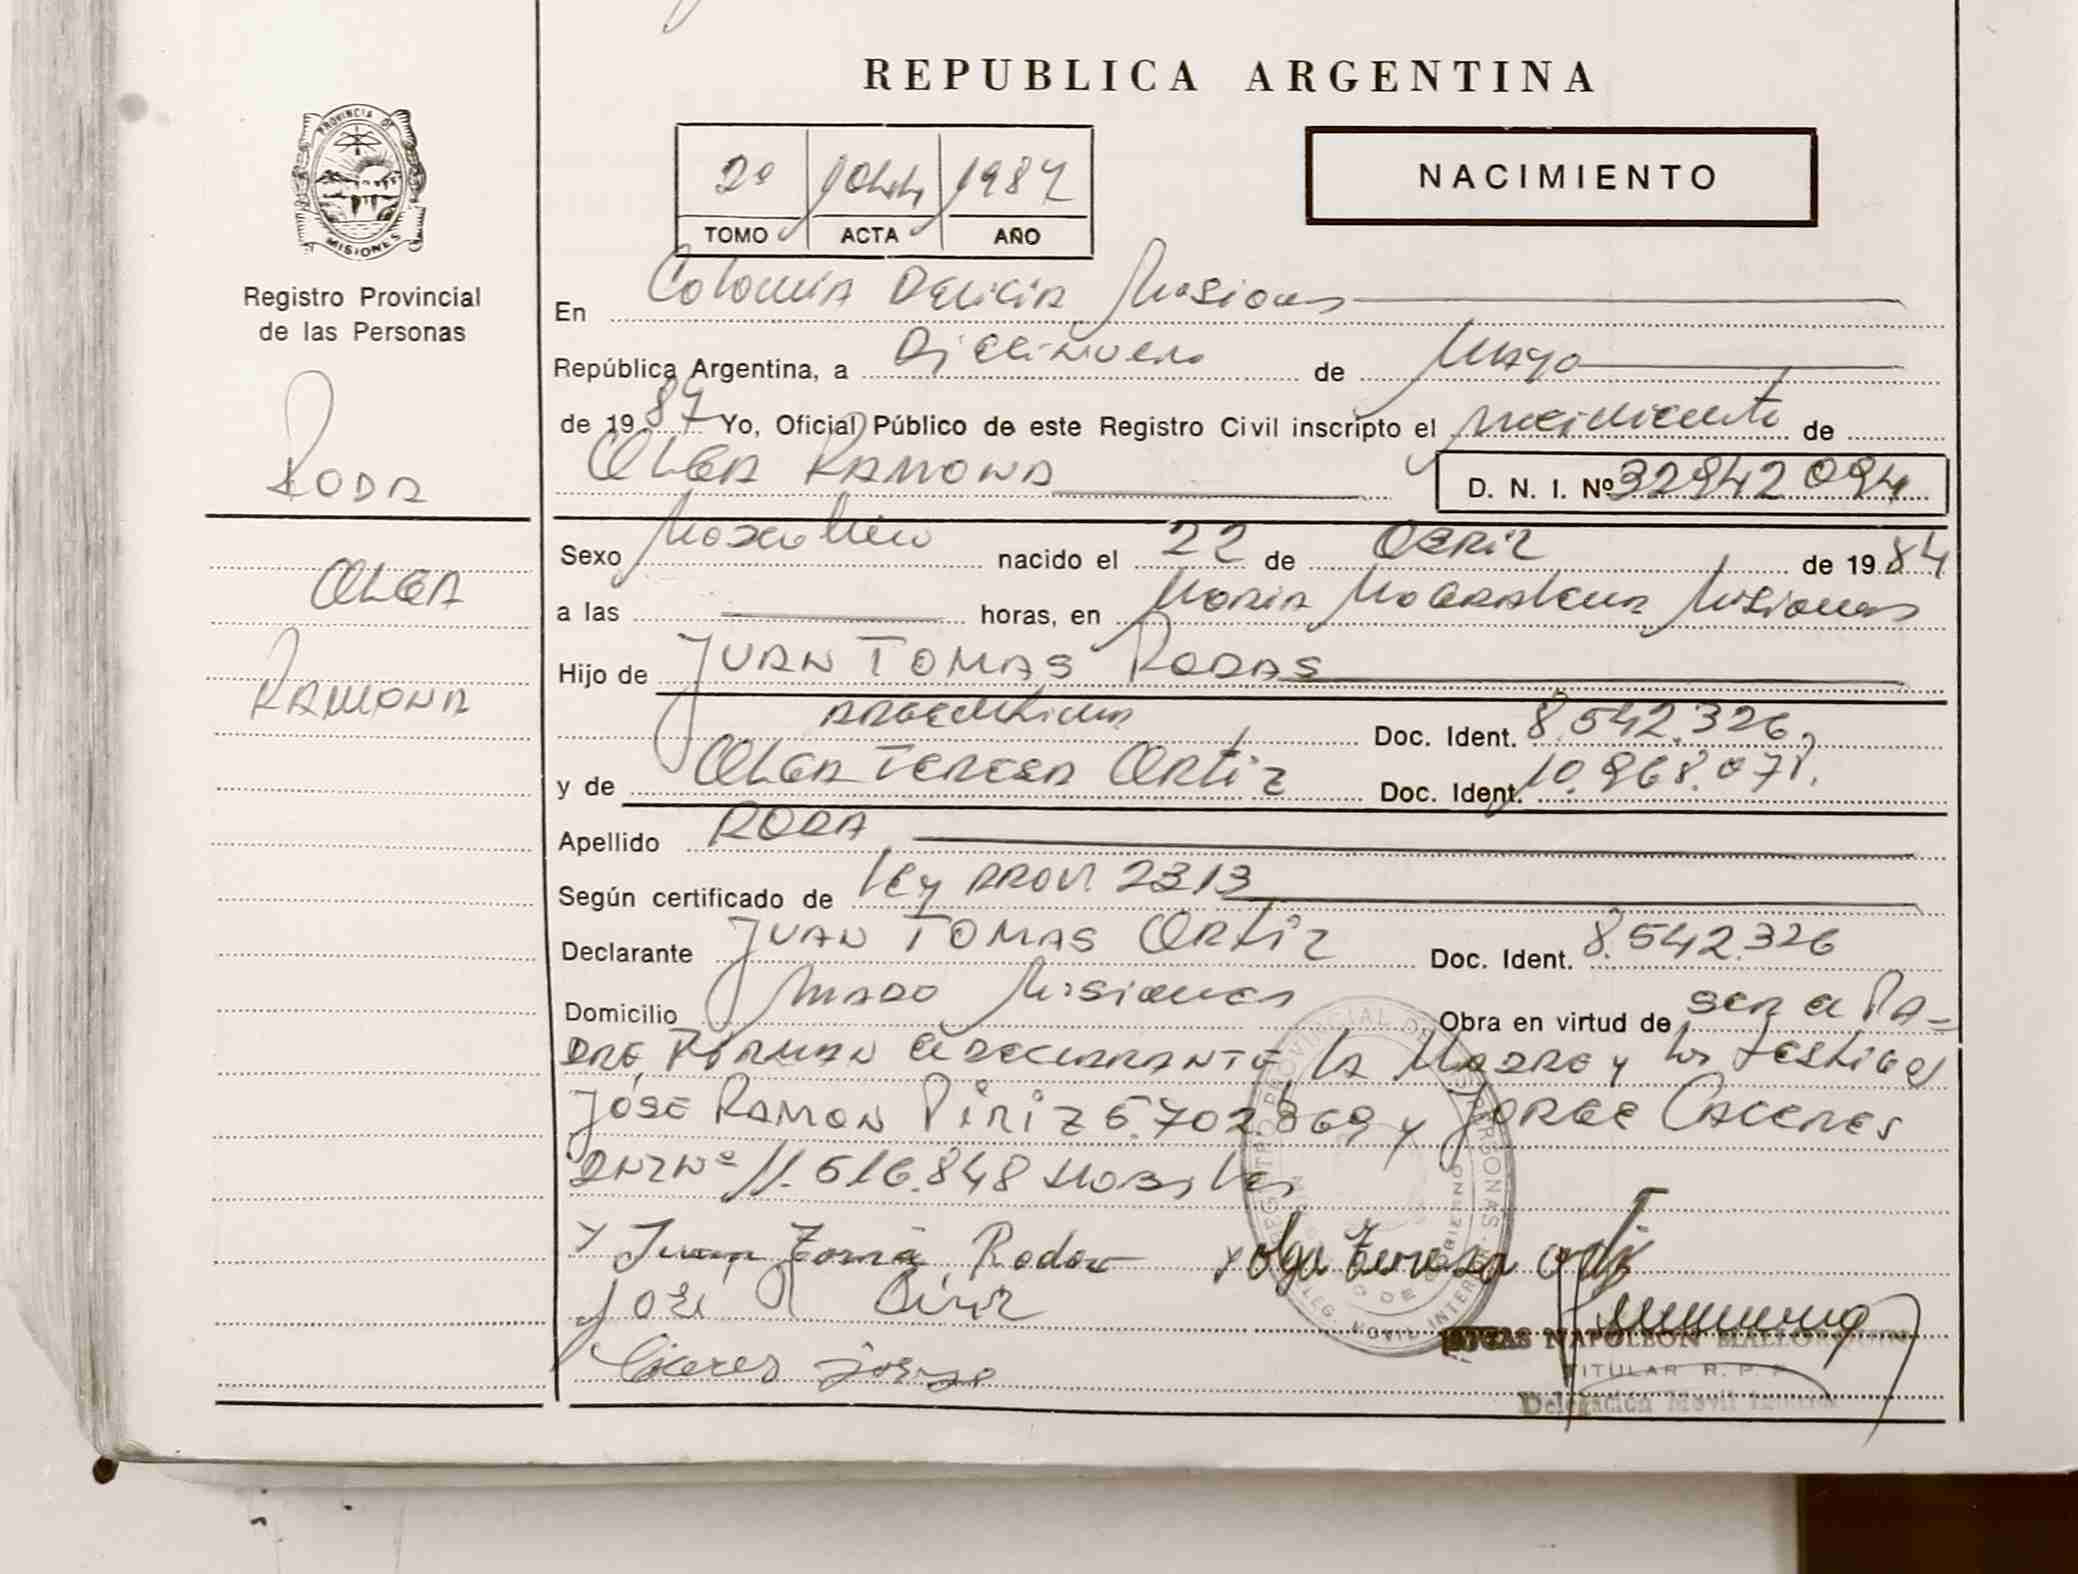 REPUBLICA ARGENTINA
PROVINCIA DE
MISIONES
Registro Provincial
de las Personas
2º 1044 1987
TOMO ACTA AÑO
NACIMIENTO
En Colonia Delicia Misiones
República Argentina, a Diecinueve de Mayo
de 1987 Yo, Oficial Público de este Registro Civil inscripto el nacimiento de
OLGA RAMONA
D. N. I. Nº 32942094
RODA
OLGA
RAMONA
Sexo Masculino nacido el 22 de Abril de 1984
a las horas, en Maria Magdalena Misiones
Hijo de JUAN TOMAS RODAS
argentina Doc. Ident. 8.542.326
y de OLGA TERESA Ortiz Doc. Ident. 10.968.078.
Apellido RODA
Según certificado de Ley PROV. 2313
Declarante JUAN TOMAS ORtiz Doc. Ident. 8.542.326
Domicilio Misiones Obra en virtud de ser el PA-
DRE, FIRMAN el DECLARANTE, LA MADRE y los testigos
JOSE RAMON PiRiZ 5.702.869 y JORGE CACERES
DNI Nº 11.516.848
x Juan Tomá Rodas x Olga Teresa Ortiz
José R Piriz
Caceres Jorge
REGISTRO PROVINCIAL DE LAS PERSONAS
NAPOLEON
TITULAR R. P. P.
Delegación Movil